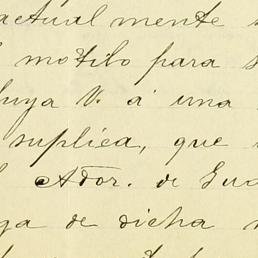 actualmente
motilo para
luya V. á una
suplica, que
Ador. de Gua
ga de dicha